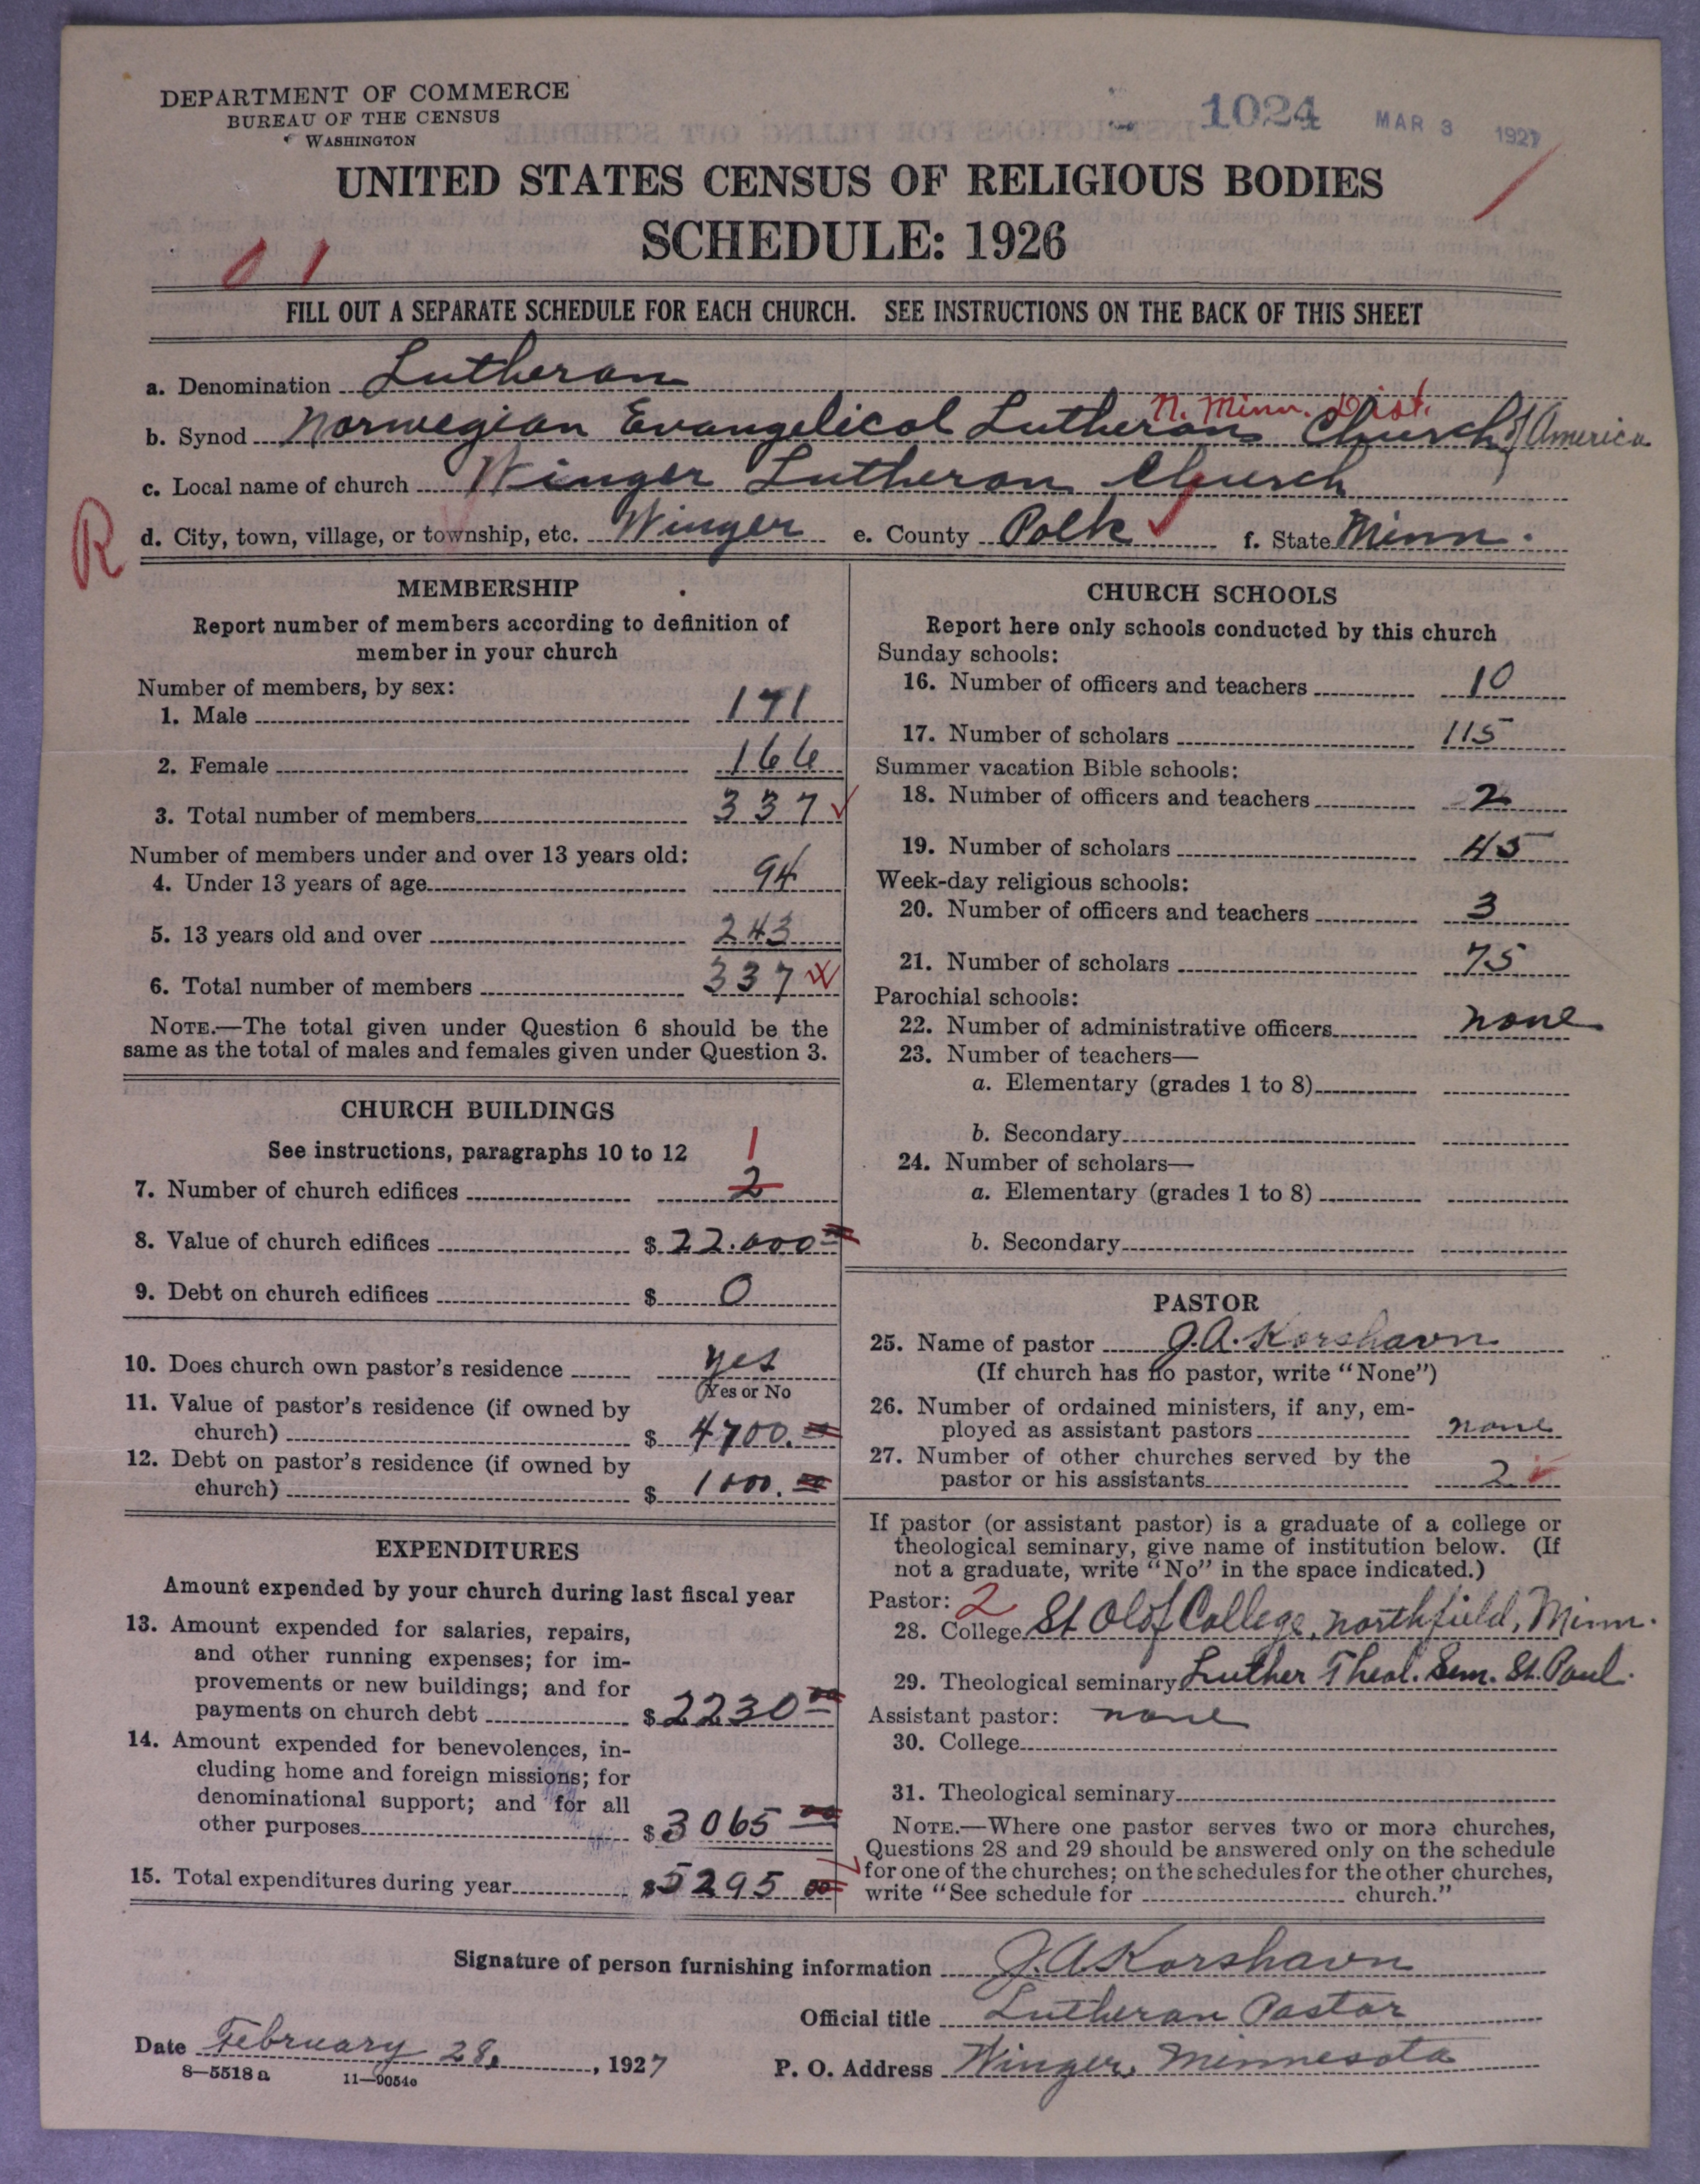 DEPARTMENT OF COMMERCE
BUREAU OF THE CENSUS
WASHINGTON
1024 MAR 3 1927
UNITED STATES CENSUS OF RELIGIOUS BODIES
SCHEDULE: 1926
0 1
FILL OUT A SEPARATE SCHEDULE FOR EACH CHURCH. SEE INSTRUCTIONS ON THE BACK OF THIS SHEET
a. Denomination Lutheran
N. Minn. Dist.
b. Synod Norwegian Evangelical Lutheran Church of America
c. Local name of church Winger Lutheran Church
R
d. City, town, village, or township, etc. Winger e. County Polk f. State Minn.
MEMBERSHIP
Report number of members according to definition of
member in your church
Number of members, by sex:
1. Male 171
2. Female 166
3. Total number of members 337
Number of members under and over 13 years old:
4. Under 13 years of age 94
5. 13 years old and over 243
6. Total number of members 337
NOTE.—The total given under Question 6 should be the
same as the total of males and females given under Question 3.
CHURCH BUILDINGS
See instructions, paragraphs 10 to 12
1
7. Number of church edifices 2
8. Value of church edifices $ 22.000 00
9. Debt on church edifices $ 0
10. Does church own pastor's residence yes
(Yes or No
11. Value of pastor's residence (if owned by
church) $ 4700. 00
12. Debt on pastor's residence (if owned by
church) $ 1000. 00
EXPENDITURES
Amount expended by your church during last fiscal year
13. Amount expended for salaries, repairs,
and other running expenses; for im-
provements or new buildings; and for
payments on church debt $ 2230 00
14. Amount expended for benevolences, in-
cluding home and foreign missions; for
denominational support; and for all
other purposes $ 3065 00
15. Total expenditures during year $ 5295 00
CHURCH SCHOOLS
Report here only schools conducted by this church
Sunday schools:
16. Number of officers and teachers 10
17. Number of scholars 115
Summer vacation Bible schools:
18. Number of officers and teachers 2
19. Number of scholars 45
Week-day religious schools:
20. Number of officers and teachers 3
21. Number of scholars 75
Parochial schools:
22. Number of administrative officers none
23. Number of teachers—
a. Elementary (grades 1 to 8)
b. Secondary
24. Number of scholars—
a. Elementary (grades 1 to 8)
b. Secondary
PASTOR
25. Name of pastor J.A. Korshavn
(If church has no pastor, write "None")
26. Number of ordained ministers, if any, em-
ployed as assistant pastors none
27. Number of other churches served by the
pastor or his assistants 2
If pastor (or assistant pastor) is a graduate of a college or
theological seminary, give name of institution below. (If
not a graduate, write "No" in the space indicated.)
Pastor: 2
28. College St Olof College, Northfield, Minn.
29. Theological seminary Luther Theol. Sem. St. Paul.
Assistant pastor: none
30. College
31. Theological seminary
NOTE.—Where one pastor serves two or more churches,
Questions 28 and 29 should be answered only on the schedule
for one of the churches; on the schedules for the other churches,
write "See schedule for church."
Signature of person furnishing information J.A. Korshavn
Official title Lutheran Pastor
Date February 28, , 1927
P. O. Address Winger, Minnesota
8—5518 a 11—9054c